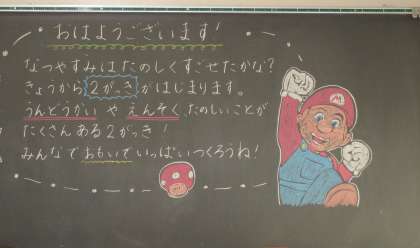 おはようございます!
なつやすみはたのしくすごせたかな?
きょうから2がっきがはじまります。
うんどうかい や えんそく、たのしいことが
たくさんある2がっき!
みんなでおもいでいっぱいつくろうね!